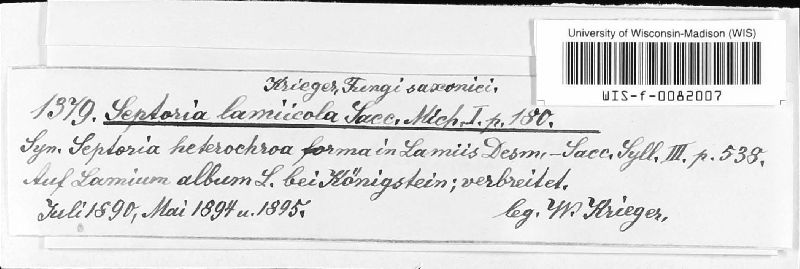 University of Wisconsin-Madison (WIS)
WIS-f-0082007
Krieger, Fungi saxonici.
1379. Septoria lamiicola Sacc. Mich. I. p. 180.
Syn. Septoria heterochroa forma in Lamiis Desm. - Sacc. Syll. III. p. 538.
Auf Lamium album L. bei Königstein; verbreitet.
Juli 1890, Mai 1894 u. 1895. leg. W. Krieger.